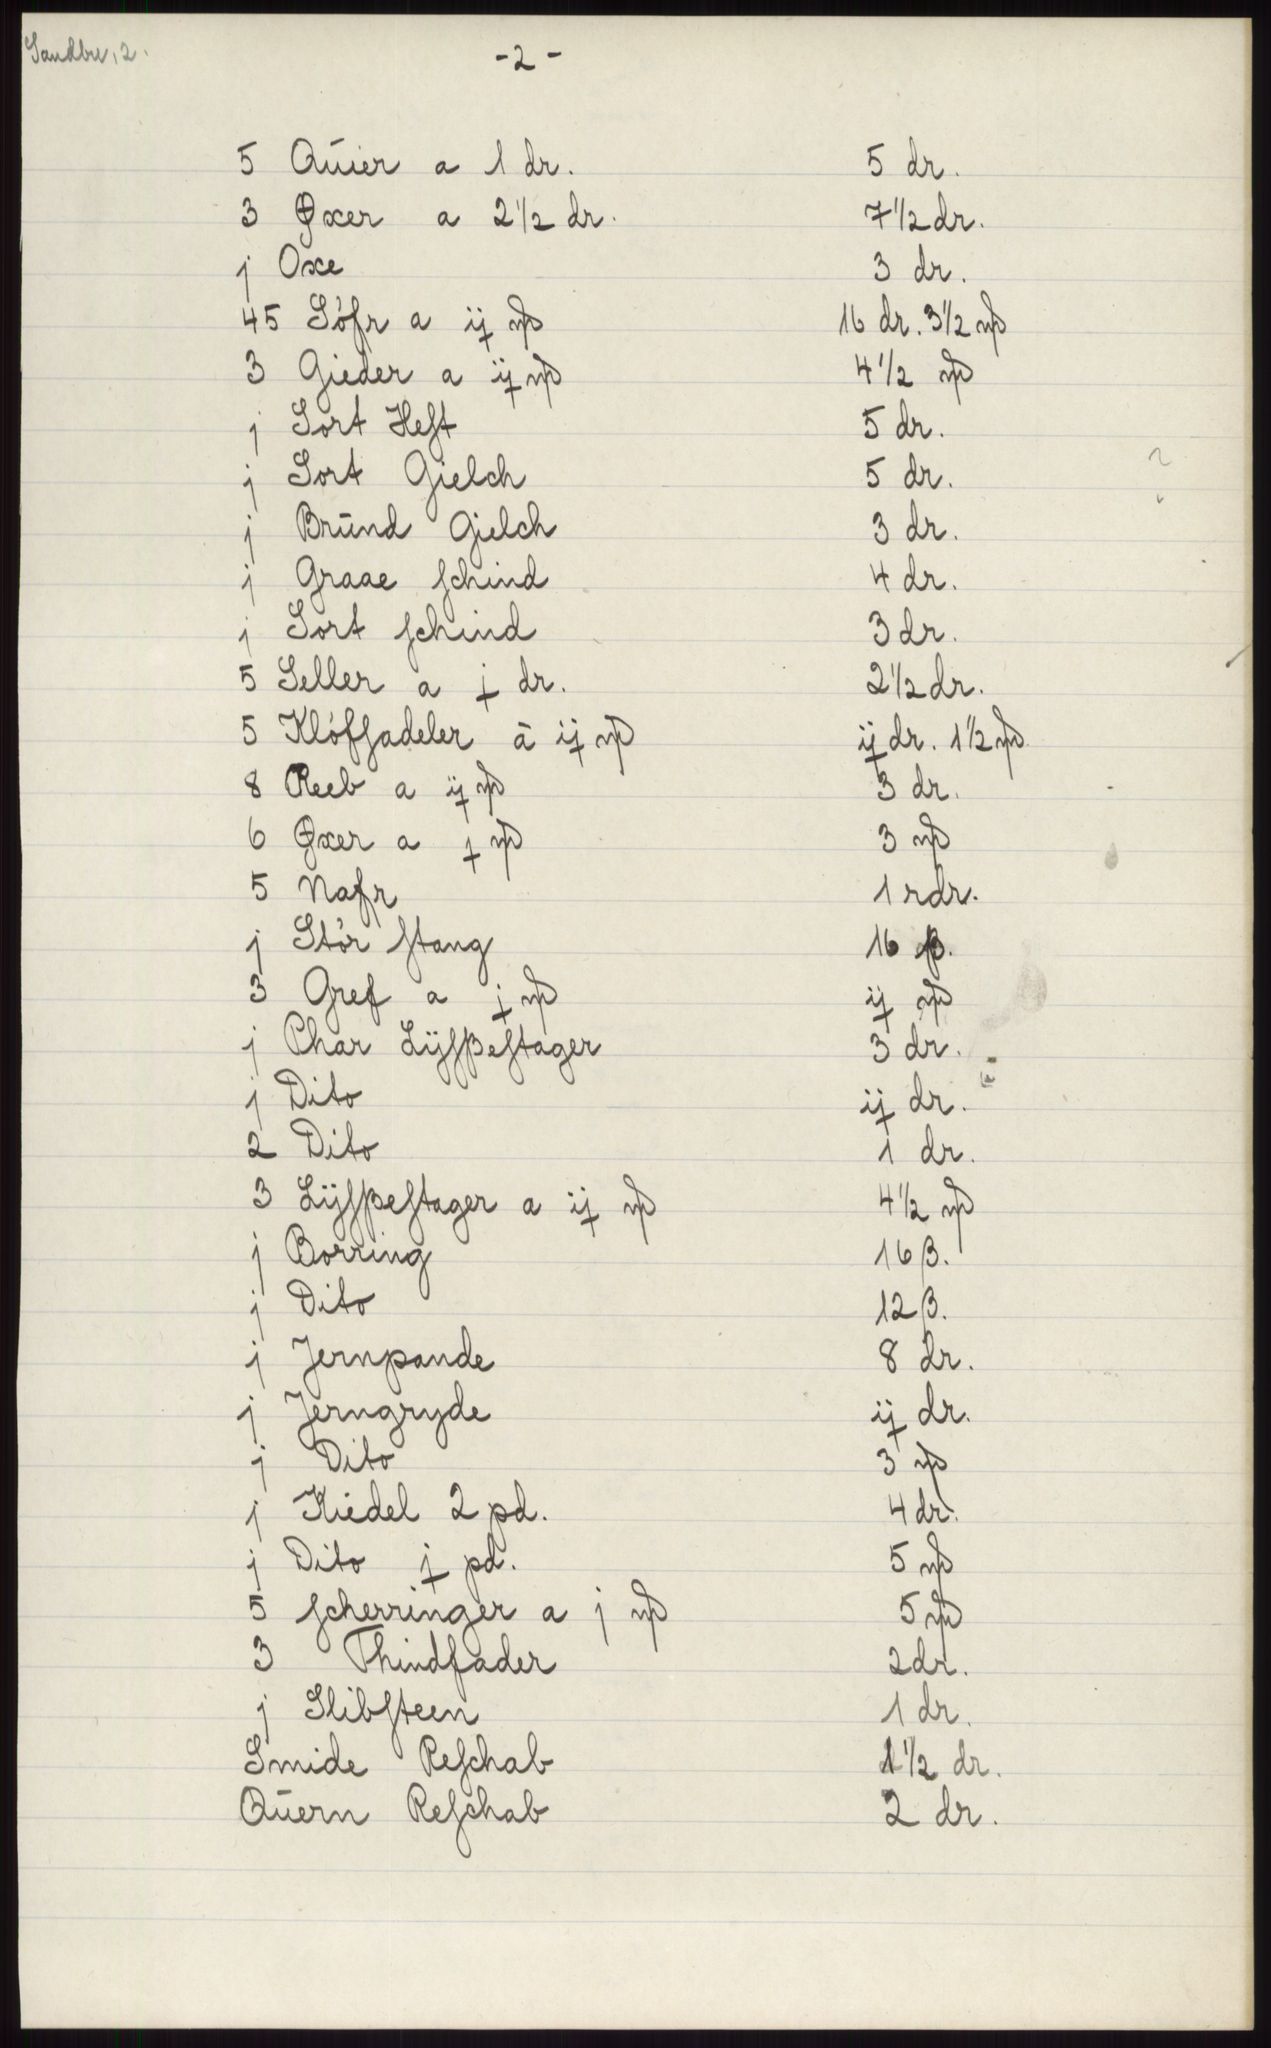 Sandbu, 2.
- 2 -
5 Qūier a 1 dr. 5 dr.
3 Øxer a 2 1/2 dr. 7 1/2 dr.
j Oxe 3 dr.
45 Sófr a ij 16 dr. 3 1/2
3 Gieder a ij 4 1/2
j Sort Hest 5 dr.
j Sort Gielch 5 dr. ?
j Brūnd Gielch 3 dr.
j Graae schind 4 dr.
j Sort schind 3 dr.
5 Seller a j dr. 2 1/2 dr.
5 Klófsadeler à ij ij dr. 1 1/2
8 Reeb a ij 3 dr.
6 Øxer a j 3
5 Nafr 1 rdr.
j Stór stang 16 β.
3 Gref a j ij
j Phar Lÿsβestager 3 dr.
j Dito ij dr.
2 Dito 1 dr.
3 Lÿsβestager a ij 4 1/2
j Borring 16 β.
j Dito 12 β.
j Jernpande 8 dr.
j Jerngryde ij dr.
j Dito 3
j Kiedel 2 pd. 4 dr.
j Dito j pd. 5
5 scherringer a j 5
3 Thindfader 2 dr.
j Slibsteen 1 dr.
Smide Reschab 1 1/2 dr.
Qūern Reschab 2 dr.